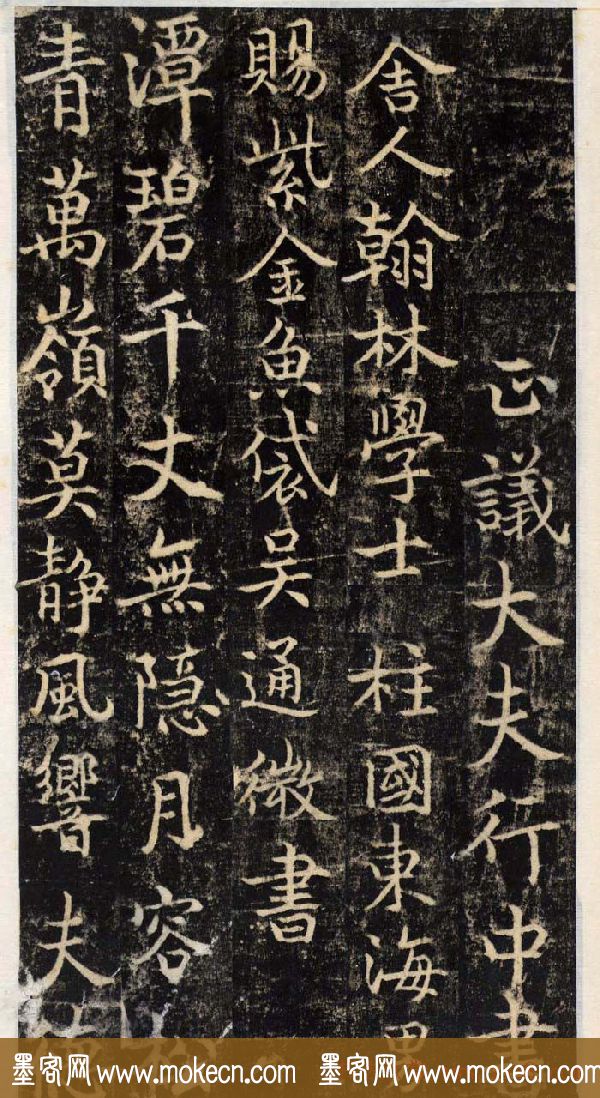 正議大夫行中書
舍人翰林學士柱國東海男
賜紫金魚袋吴通微書
潭碧千丈無隐月容松
青萬嶺莫静風響夫德
墨客网 www.mokecn.com 墨客网 www.mokecn.com